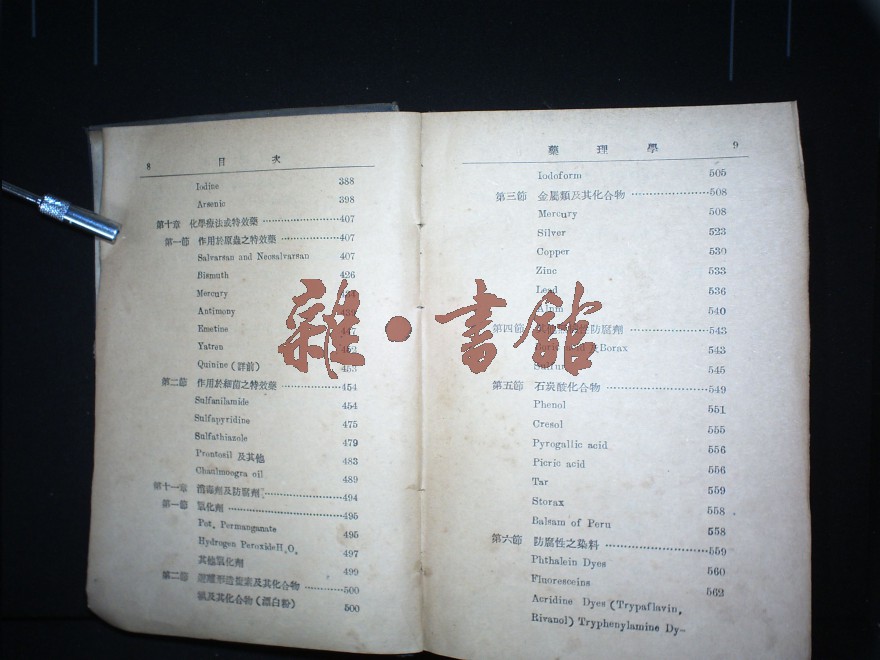 8 目 次
Iodine 388
Arsenic 398
第十章 化學療法或特效藥 407
第一節 作用於原蟲之特效藥 407
Salvarsan and Neosalvarsan 407
Bismuth 426
Mercury
Antimony
Emetine 447
Yatren 452
Quinine (詳前) 453
第二節 作用於細菌之特效藥 454
Sulfanilamide 454
Sulfapyridine 475
Sulfathiazole 479
Prontosil 及其他 483
Chaulmoogra oil 489
第十一章 消毒劑及防腐劑 494
第一節 氧化劑 495
Pot. Permanganate 495
Hydrogen Peroxide H₂O₂ 497
其他氧化劑 499
第二節 造鹽素及其化合物 500
氯及其化合物(漂白粉) 500
藥 理 學 9
Iodoform 505
第三節 金屬類及其化合物 508
Mercury 508
Silver 523
Copper 530
Zinc 533
Lead 536
Alum 540
第四節 防腐劑 543
Boric acid 及 Borax 543
Sulfur 545
第五節 石炭酸化合物 549
Phenol 551
Cresol 555
Pyrogallic acid 556
Picric acid 556
Tar 559
Storax 558
Balsam of Peru 558
第六節 防腐性之染料 559
Phthalein Dyes 560
Fluoresceins 562
Acridine Dyes (Trypaflavin,
Rivanol) Tryphenylamine Dy-
雜·書館